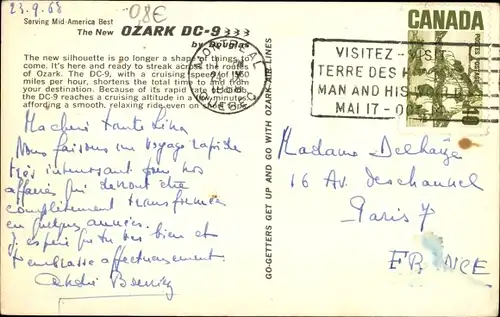 23.9.68
0,8€
Serving Mid-America Best
The New OZARK DC-9
by Douglas
The new silhouette is no longer a shape of things to
come. It's here and ready to streak across the routes
of Ozark. The DC-9, with a cruising speed of 560
miles per hour, shortens the total time to and from
your destination. Because of its rapid rate of climb,
the DC-9 reaches a cruising altitude in a few minutes
affording a smooth, relaxing ride even on
GO-GETTERS GET UP AND GO WITH OZARK AIR LINES
MONTREAL
QUEBEC
CANADA
VISITEZ - VISIT
TERRE DES
MAN AND HIS WORLD
MAI 17 -
Ma chère tante Lina
Nous faisons un voyage rapide
très intéressant pour nos
affaires qui devront être
complètement transformées
en quelques années.
J'espère que tu vas bien et
t'embrasse affectueusement
André
Madame Delhaÿe
16 Av. deschanel
Paris 7
FRANCE